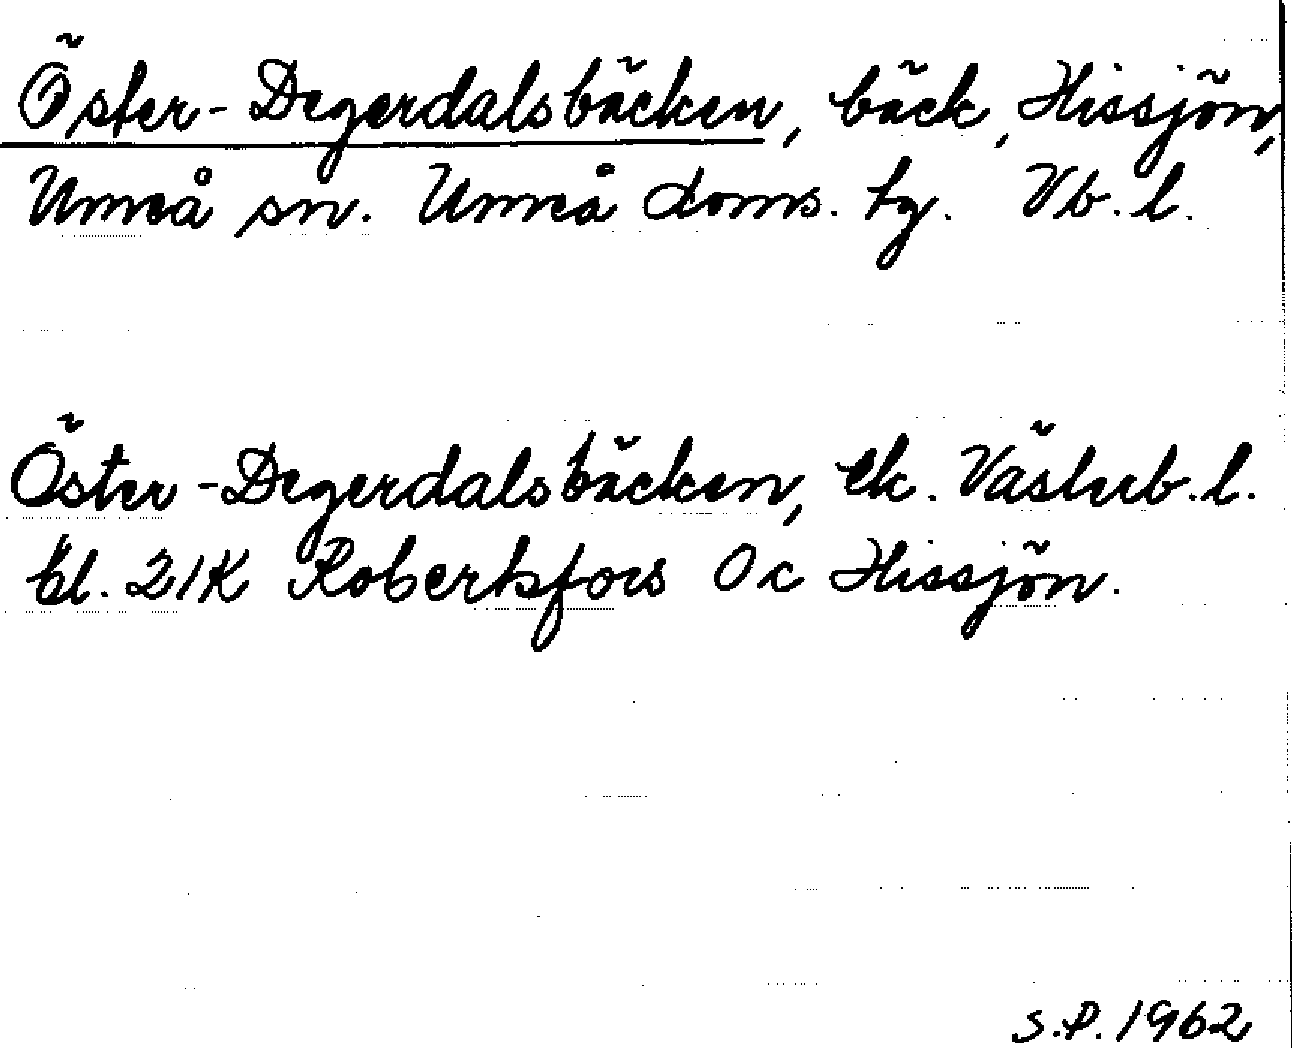 Öster-Degerdalsbäcken, bäck, Hissjön,
Umeå sn. Umeå doms. tg. Vb. l.
Öster-Degerdalsbäcken, ek. Västerb. l.
bl. 21K Robertsfors 0c Hissjön.
S.P. 1962